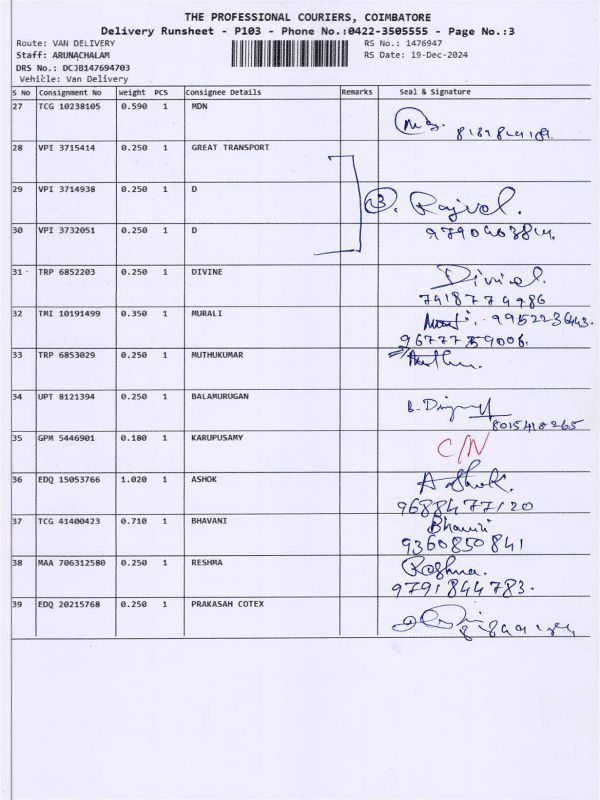 THE PROFESSIONAL COURIERS, COIMBATORE
Delivery Runsheet - P103 - Phone No.:0422-3505555 - Page No.:3
Route: VAN DELIVERY RS No.: 1476947
Staff: ARUNACHALAM RS Date: 19-Dec-2024
DRS No.: DCJB147694703
Vehicle: Van Delivery
S No Consignment No Weight PCS Consignee Details Remarks Seal & Signature
27 TCG 10238105 0.590 1 MDN
28 VPI 3715414 0.250 1 GREAT TRANSPORT
29 VPI 3714938 0.250 1 D
3. Rajvel.
30 VPI 3732051 0.250 1 D
31 TRP 6852203 0.250 1 DIVINE
7418774986
32 TMI 10191499 0.350 1 MURALI
9952236443.
9677759006.
33 TRP 6853029 0.250 1 MUTHUKUMAR
34 UPT 8121394 0.250 1 BALAMURUGAN
8015418265
35 GPM 5446901 0.180 1 KARUPUSAMY C/N
36 EDQ 15053766 1.020 1 ASHOK Ashok.
9688477120
37 TCG 41400423 0.710 1 BHAVANI
9360850841
38 MAA 706312580 0.250 1 RESHMA
9791844783.
39 EDQ 20215768 0.250 1 PRAKASAH COTEX